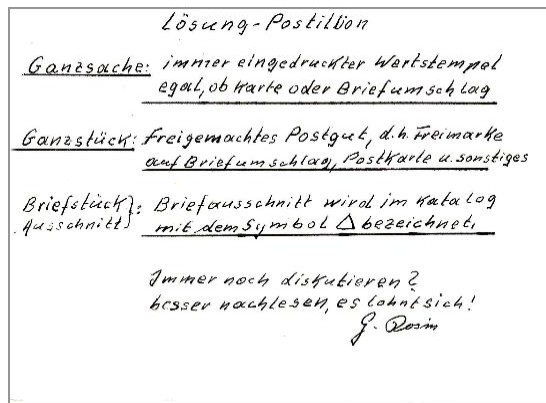 Lösung-Postillion
Ganzsache: immer eingedruckter Wertstempel
egal, ob Karte oder Briefumschlag
Ganzstück: Freigemachtes Postgut, d.h. Freimarke
auf Briefumschlag, Postkarte u. sonstiges
Briefstück}: Briefausschnitt wird im Katalog
Ausschnitt} mit dem Symbol △ bezeichnet.
Immer noch diskutieren?
besser nachlesen, es lohnt sich!
G. Rosin